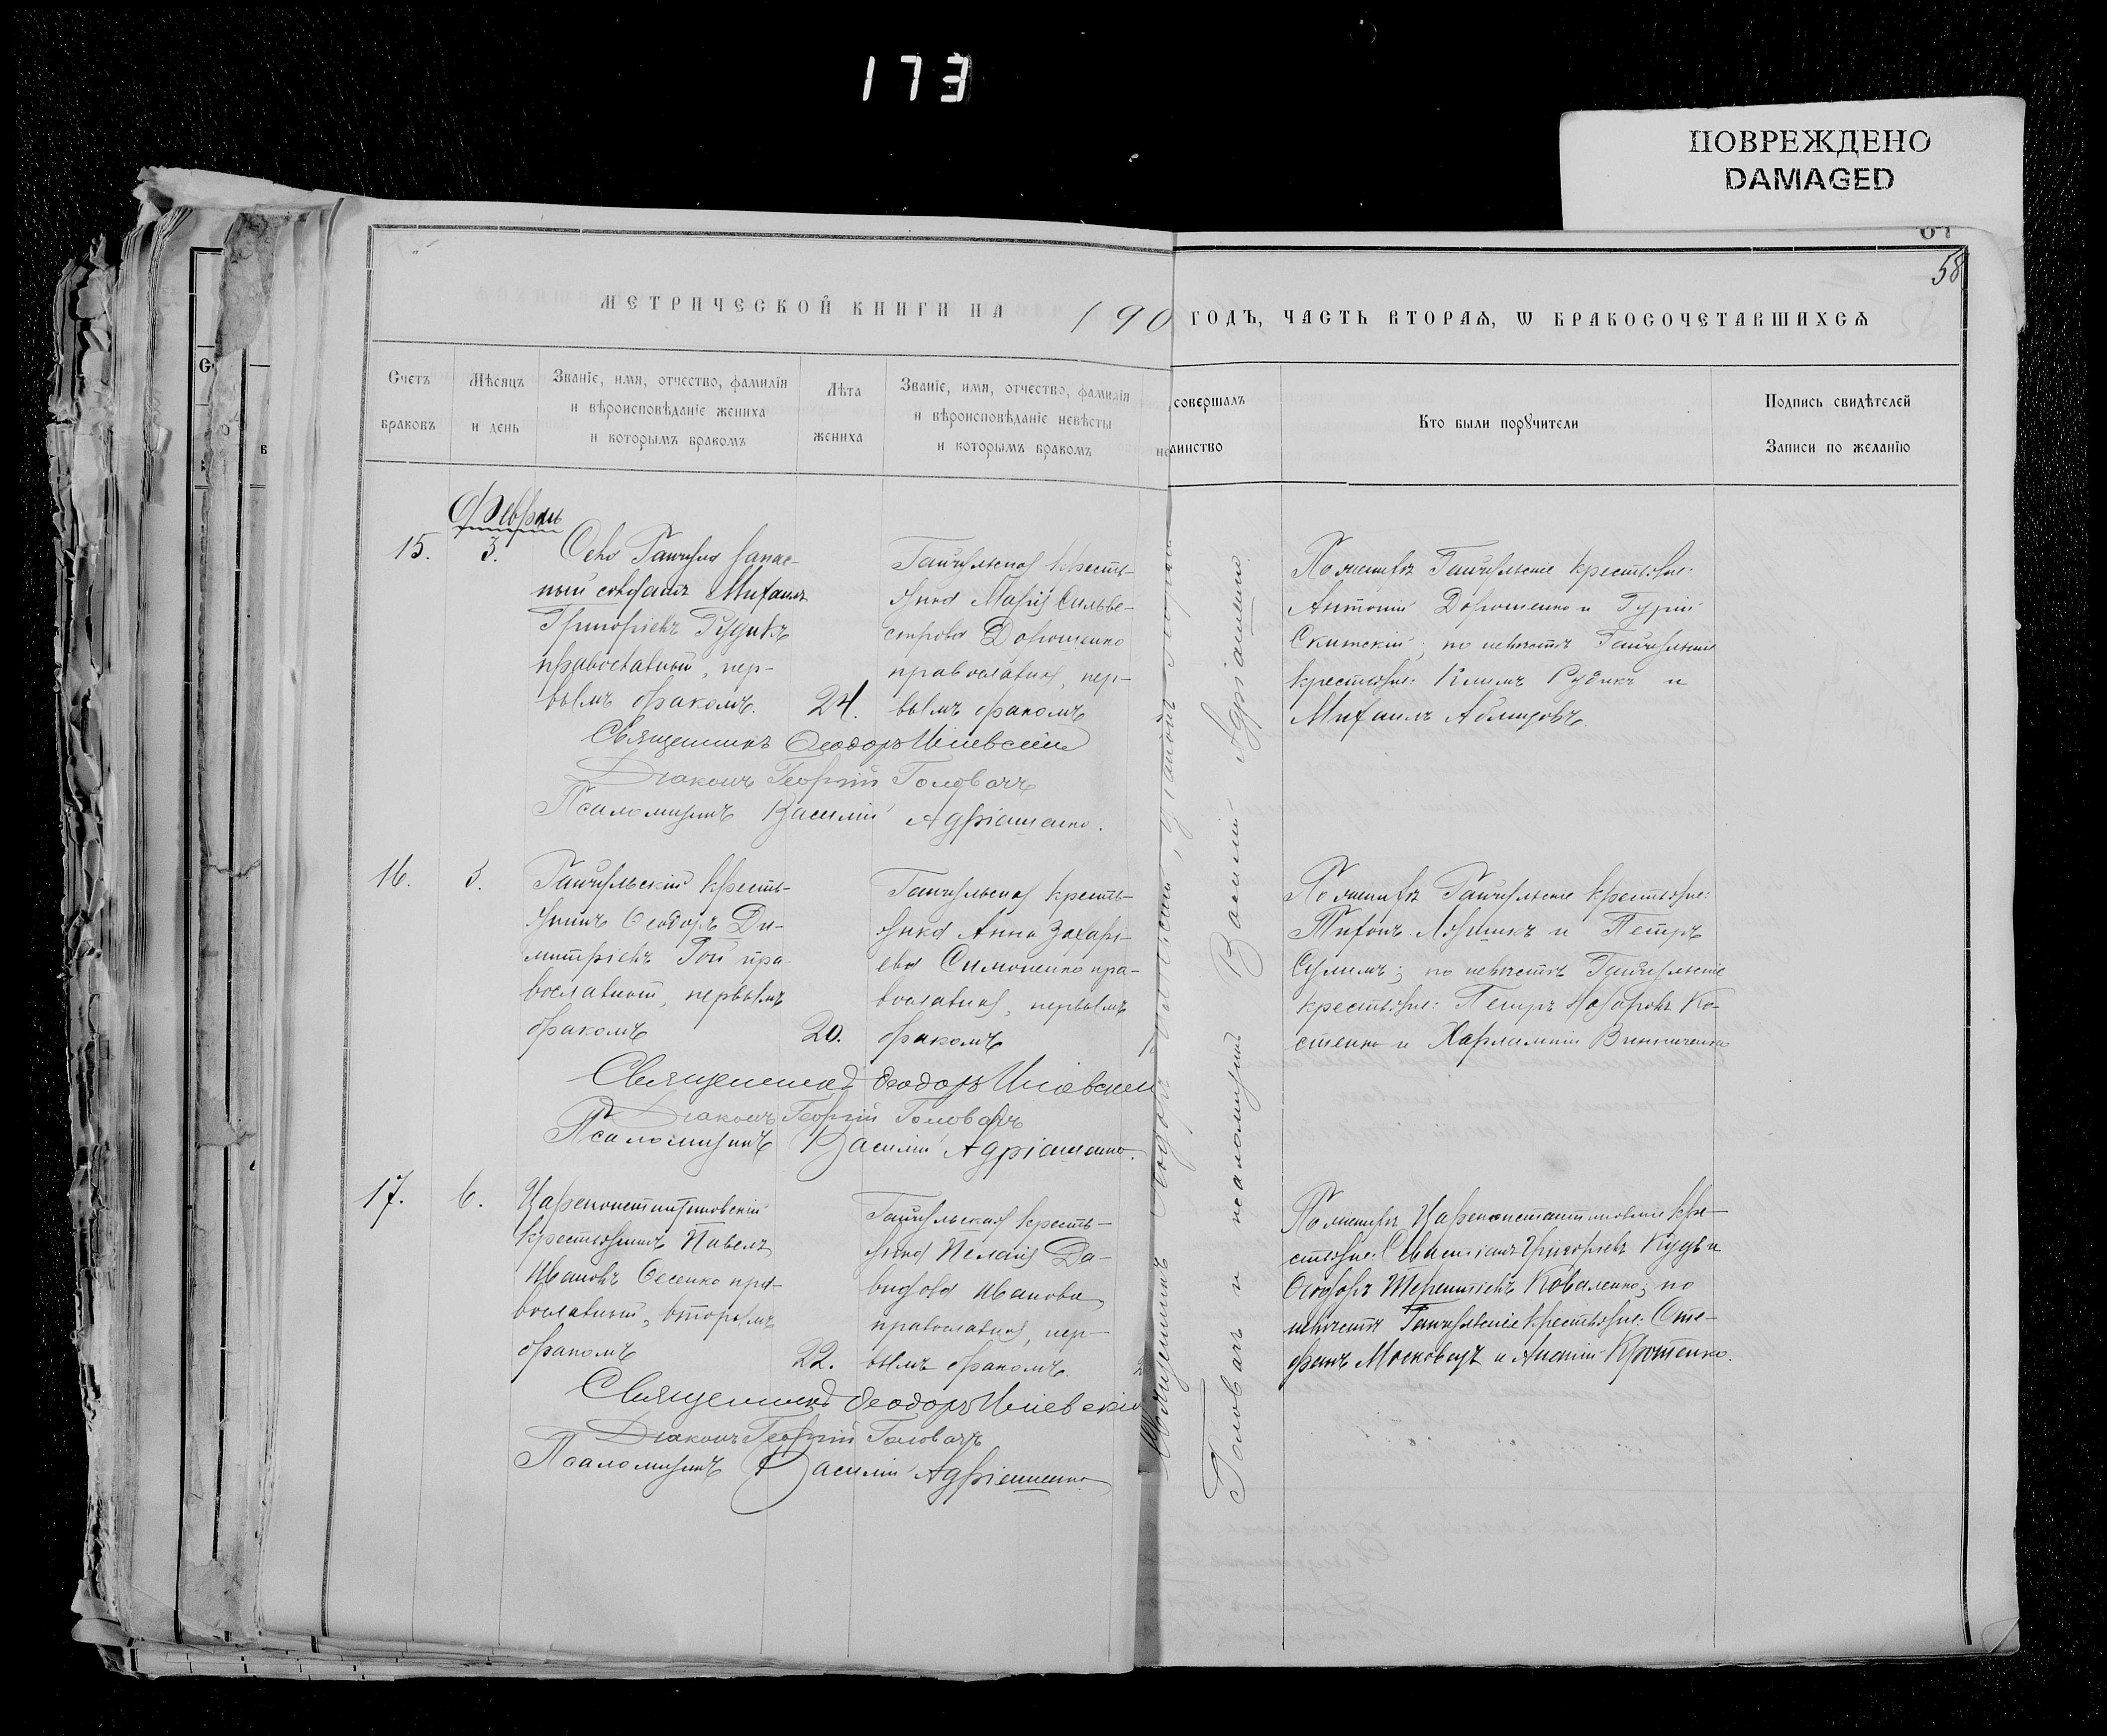 173
ПОВРЕЖДЕНО
DAMAGED
58
МЕТРИЧЕСКОЙ КНИГИ НА 190 ГОДЪ, ЧАСТЬ ВТОРАѦ, Ѡ БРАКОСОЧЕТАВШИХСѦ
Счетъ
браковъ
Мѣсяцъ
и день
Званіе, имя, отчество, фамилія
и вѣроисповѣданіе жениха
и которымъ бракомъ
Лѣта
жениха
Званіе, имя, отчество, фамилія
и вѣроисповѣданіе невѣсты
и которымъ бракомъ
совершалъ
аинство
Кто были порꙋчители
Подпись свидѣтелей
Записи по желанію
Февраль
15.
3.
Села Гайчула запас-
ный солдатъ Михаилъ
Григоріевъ Рудикъ
православный, пер-
вымъ бракомъ.
24.
Гайчульская кресть-
янка Марія Сильве-
строва Дорошенко
православная, пер-
вымъ бракомъ
По женихѣ Гайчульскіе крестьяне:
Антоній Дорошенко и Гурій
Скитскій; по невѣстѣ Гайчульскіе
крестьяне: Климъ Рудикъ и
Михаилъ
Священникъ Ѳеодоръ
Діаконъ Георгій Головачъ
Псаломщикъ Василій Адріашенко.
16.
3.
Гайчульскій кресть-
янинъ Ѳеодоръ Ди-
митріевъ Гой пра-
вославный, первымъ
бракомъ
20.
Гайчульская кресть-
янка Анна Захарі-
ева Симоненко пра-
вославная, первымъ
бракомъ
По женихѣ Гайчульскіе крестьяне:
Тихонъ и Петръ
по невѣстѣ Гайчульскіе
крестьяне: Петръ Назаровъ Ко-
стенко и Харлампій Винниченко
Священникъ Ѳеодоръ
Діаконъ Георгій Головачъ
Псаломщикъ Василій Адріашенко.
17.
6.
Цареконстантиновскій
крестьянинъ Павелъ
Ивановъ Есенко пра-
вославный, вторымъ
бракомъ
22.
Гайчульская кресть-
янка Пелагія Да-
видова Иванова,
православная, пер-
вымъ бракомъ.
2
По женихѣ Цареконстантиновскіе кре-
стьяне: Севастіанъ Григорьевъ и
Ѳеодоръ Терентіевъ Коваленко; по
невѣстѣ Гайчульскіе крестьяне: Сте-
фанъ Московецъ и
Священникъ Ѳеодоръ
Діаконъ Георгій Головачъ
Псаломщикъ Василій Адріашенко
Священникъ Ѳеодоръ діаконъ Георгій
Головачъ и псаломщикъ Василій Адріашенко